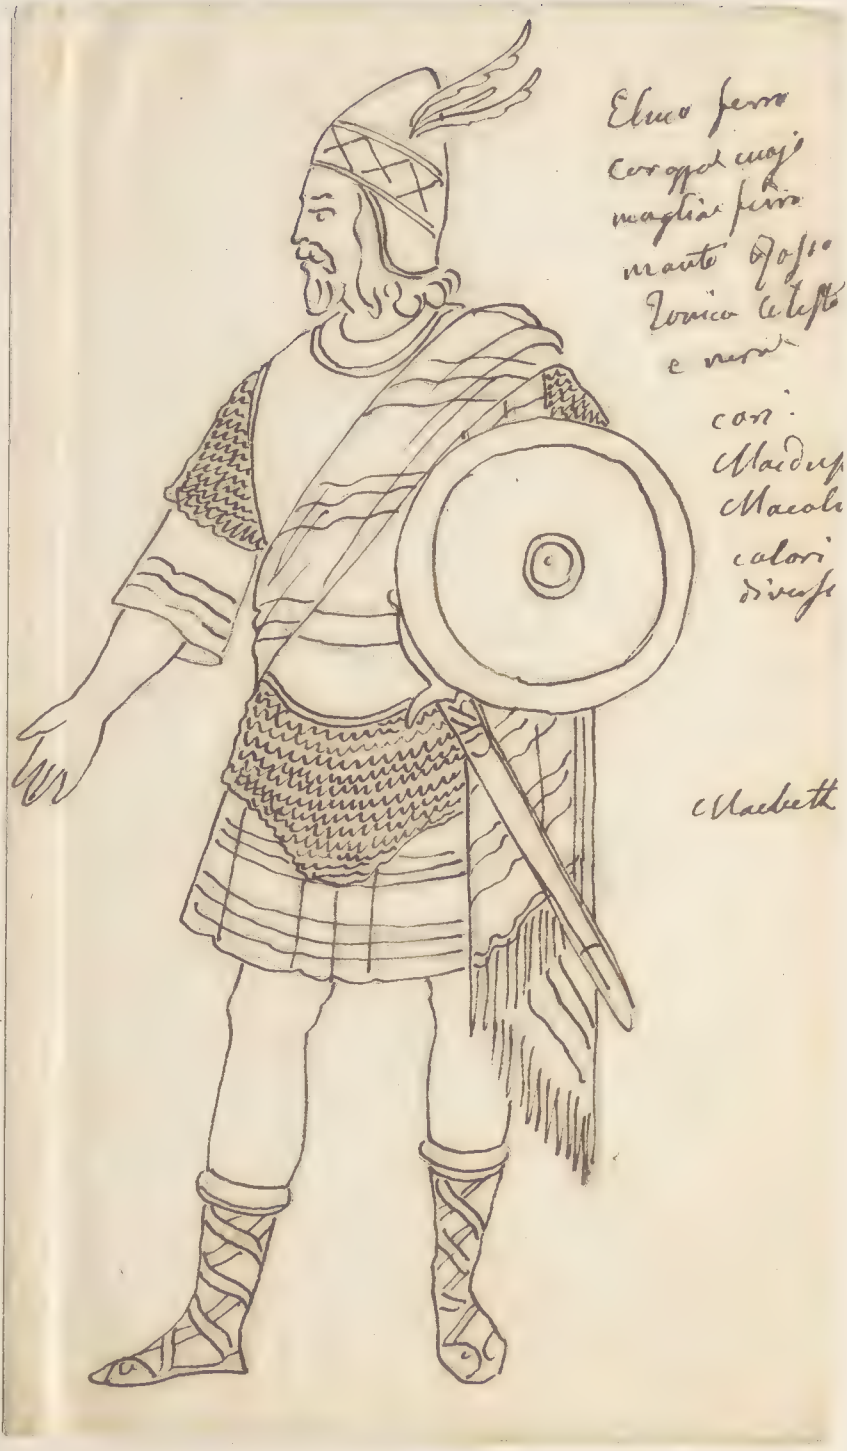 Elmo ferro
corazza cuojo
maglia ferro
manto Rosso
Tonica Celeste
e nera
cosi
Macduf
Macolm
colori
diversi
Macbeth